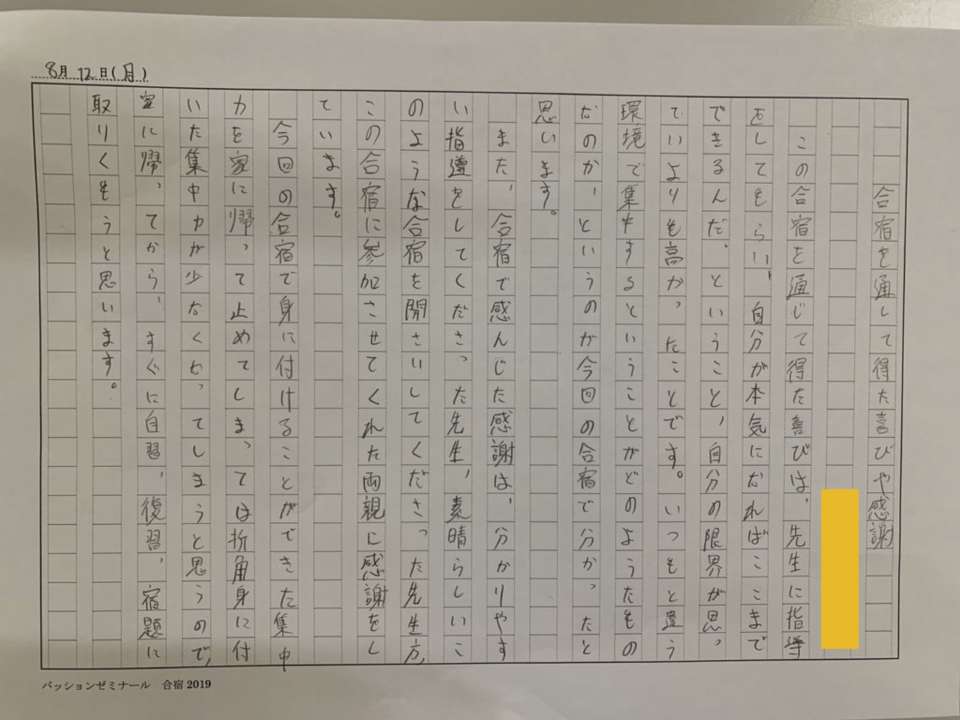 8月12日(月)
合宿を通して得た喜びや感謝
この合宿を通じて得た喜びは、先生に指導
をしてもらい、自分が本気になればここまで
できるんだ、ということ、自分の限界が思っ
ていよりも高かったことです。いつもと違う
環境で集中するということがどのようなもの
なのか、というのが今回の合宿で分かったと
思います。
また、合宿で感んじた感謝は、分かりやす
い指導をしてくださった先生、素晴らしいこ
のような合宿を開さいしてくださった先生方、
この合宿に参加させてくれた両親に感謝をし
ています。
今回の合宿で身に付けることができた集中
力を家に帰って止めてしまっては折角身に付
いた集中力が少なくなってしまうと思うので、
家に帰ってから、すぐに自習、復習、宿題に
取りくもうと思います。
パッションゼミナール 合宿2019